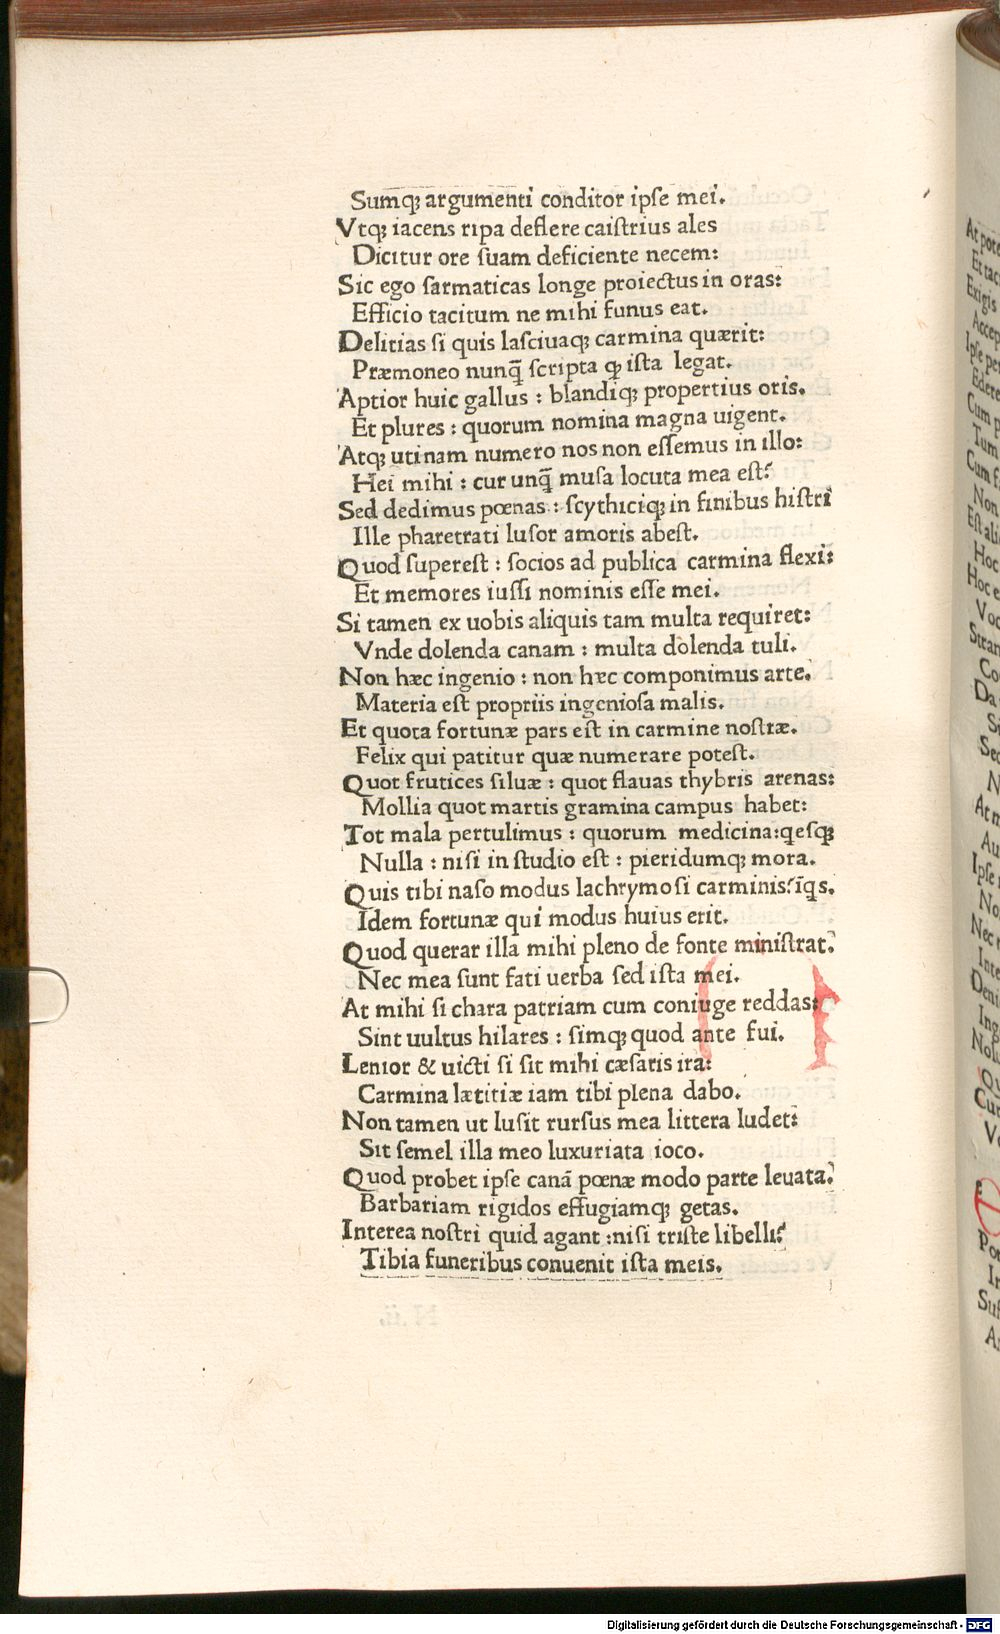 Sumqꝫ argumenti conditor ipſe mei.
Vtqꝫ iacens ripa deflere caiſtrius ales
Dicitur ore ſuam deficiente necem:
Sic ego ſarmaticas longe proiectus in oras:
Efficio tacitum ne mihi funus eat.
Delitias ſi quis laſciuaqꝫ carmina quærit:
Præmoneo nunq̄ ſcripta ꝙ iſta legat.
Aptior huic gallus : blandiqꝫ propertius oris.
Et plures : quorum nomina magna uigent.
Atqꝫ utinam numero nos non eſſemus in illo:
Hei mihi : cur unq̄ muſa locuta mea eſt?
Sed dedimus pœnas : ſcythiciqꝫ in finibus hiſtri
Ille pharetrati luſor amoris abeſt.
Quod ſupereſt : ſocios ad publica carmina flexi:
Et memores iuſſi nominis eſſe mei.
Si tamen ex uobis aliquis tam multa requiret:
Vnde dolenda canam : multa dolenda tuli.
Non hæc ingenio : non hæc componimus arte.
Materia eſt propriis ingenioſa malis.
Et quota fortunæ pars eſt in carmine noſtræ.
Felix qui patitur quæ numerare poteſt.
Quot frutices ſiluæ : quot flauas thybris arenas:
Mollia quot martis gramina campus habet:
Tot mala pertulimus : quorum medicina:qeſqꝫ
Nulla : niſi in ſtudio eſt : pieridumqꝫ mora.
Quis tibi naſo modus lachrymoſi carminis?īqs.
Idem fortunæ qui modus huius erit.
Quod querar illa mihi pleno de fonte miniſtrat.
Nec mea ſunt fati uerba ſed iſta mei.
At mihi ſi chara patriam cum coniuge reddas:
Sint uultus hilares : ſimqꝫ quod ante fui.
Lenior & uicti ſi ſit mihi cæſaris ira:
Carmina lætitiæ iam tibi plena dabo.
Non tamen ut luſit rurſus mea littera ludet:
Sit ſemel illa meo luxuriata ioco.
Quod probet ipſe canā pœnæ modo parte leuata.
Barbariam rigidos effugiamqꝫ getas.
Interea noſtri quid agant :niſi triſte libelli?
Tibia funeribus conuenit iſta meis.
At pote
Et taci
Exigis
Accep
Ipſe per
Edere
Cum p
Tum
Cum f
Non
Eſt ali
Hoc
Hoc e
Voc
Stran
Co
Da
Sed
N
At m
Au
Ipſe
No
Nec
Inte
Deni
Ing
Nol
Cur
Ve
Por
In
Suf
Digitalisierung gefördert durch die Deutsche Forschungsgemeinschaft - DFG